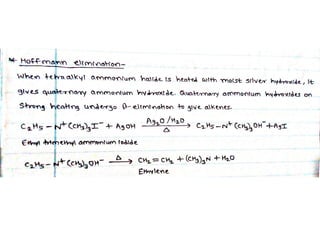 * Hoffmann elimination-
When tetraalkyl ammonium halide is heated with moist silver hydroxide, it
gives quaternary ammonium hydroxide. Quaternary ammonium hydroxides on
Strong heating undergo β-elimination to give alkenes.
C₂H₅-N⁺(CH₃)₃I⁻ + AgOH Ag₂O/H₂O → Δ C₂H₅-N⁺(CH₃)₃OH⁻ + AgI
Ethyl trimethyl ammonium Iodide
C₂H₅-N⁺(CH₃)₃OH⁻ Δ → CH₂=CH₂ + (CH₃)₃N + H₂O
Ethylene